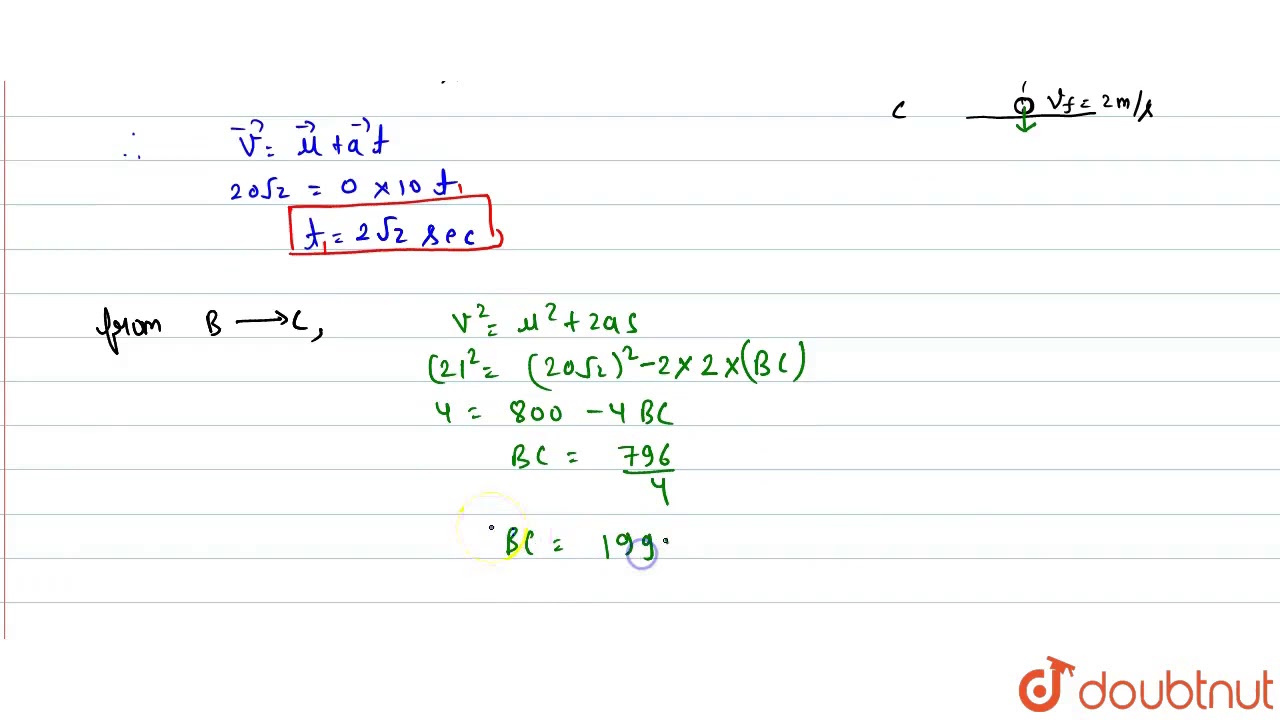 C V_f = 2m/s
∴ V⃗ = u⃗ + a⃗ t
20√2 = 0 × 10 t₁
t₁ = 2√2 sec
from B ⟶ C, v² = u² + 2as
(2)² = (20√2)² - 2 × 2 × (BC)
4 = 800 - 4 BC
BC = 796/4
BC = 199.
doubtnut